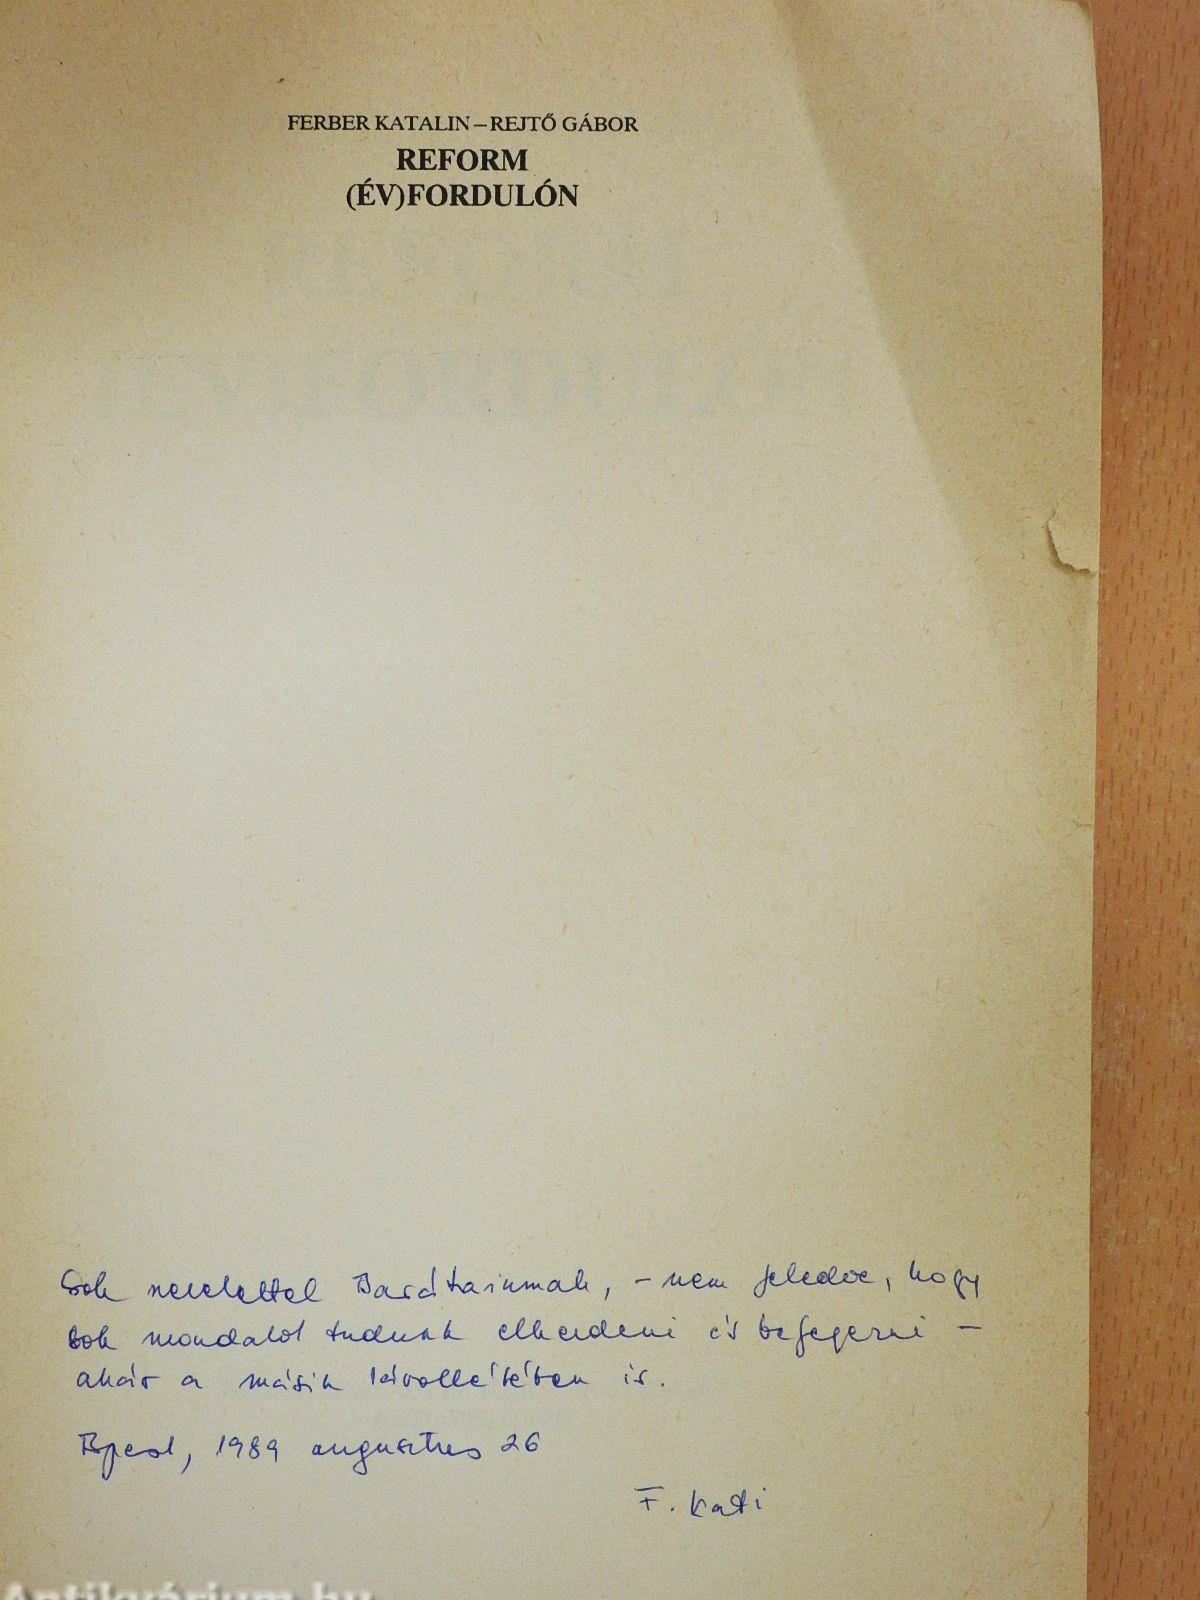 FERBER KATALIN–REJTŐ GÁBOR
REFORM
(ÉV)FORDULÓN
Sok szeretettel Barátainmak, – nem feledve, hogy
sok mondatot tudunk elkezdeni és befejezni –
akár a másik távollétében is.
Bpest, 1989 augusztus 26
F. Kati
Antikvárium.hu